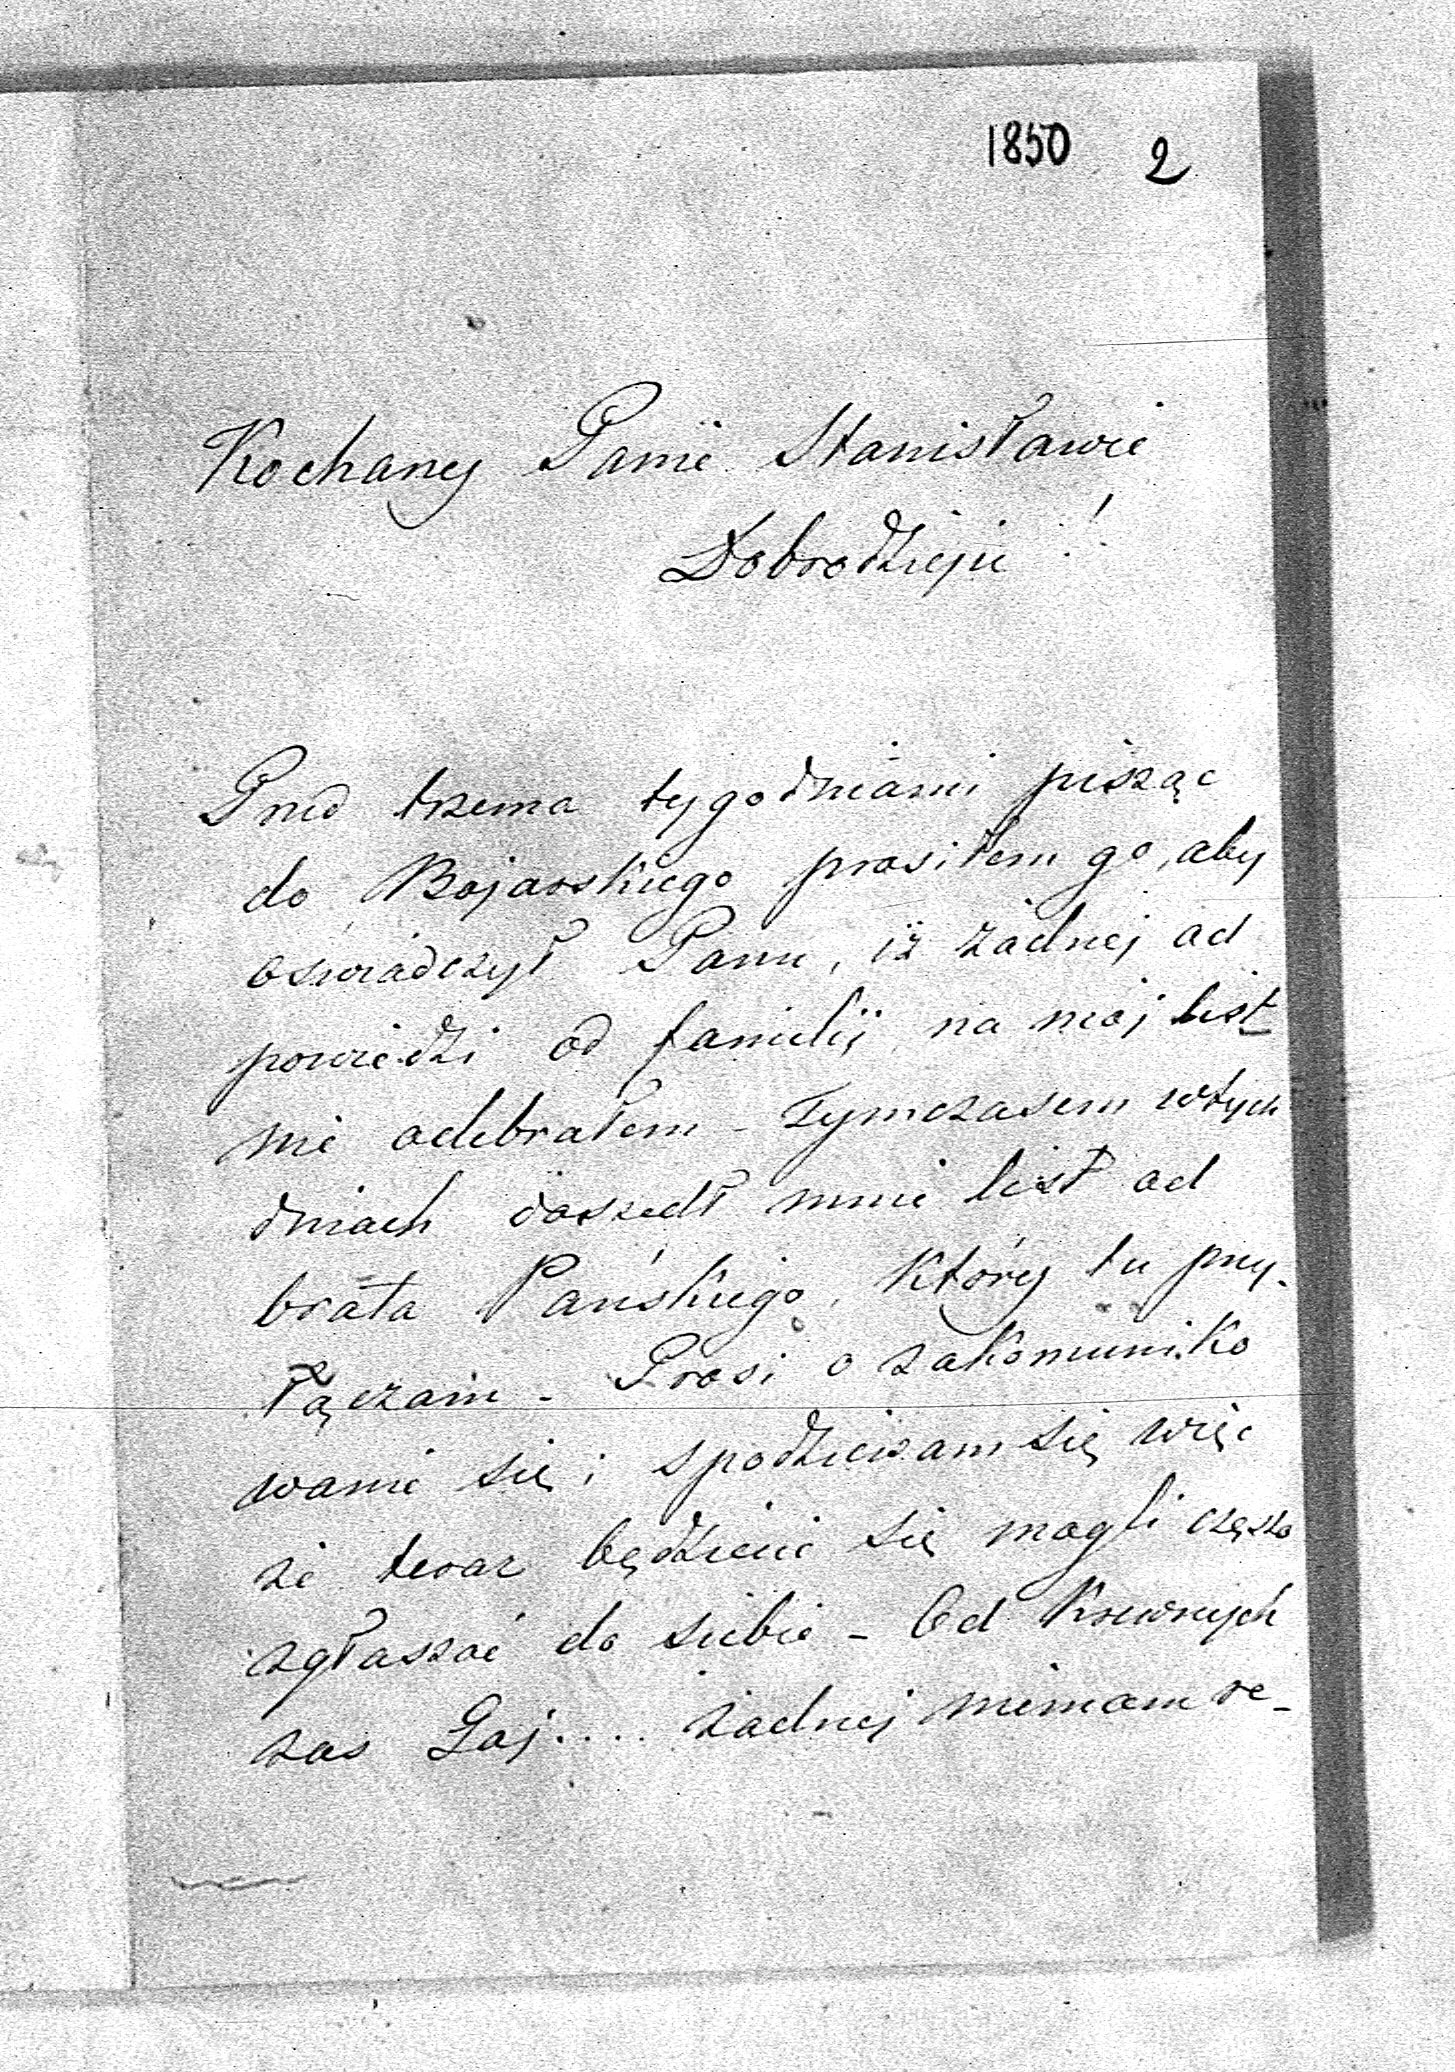 1850 2
Kochany Panie Stanisławie
Dobrodzieju!
Przed trzema tygodniami pisząc
do Bojarskiego prosiłem go, aby
oświadczył Panu, iż żadnej od
powiedzi od familij, na mój list
nie odebrałem – Tymczasem w tych
dniach doszedł mnie list od
brata Pańskiego, który tu przy-
łączam – Prosi o zakomuniko
wanie się; spodziewam się więc
że teraz będziecie się mogli często
zgłaszać do siebie – Od Krewnych
zas Gaj.... żadnej niemam re-